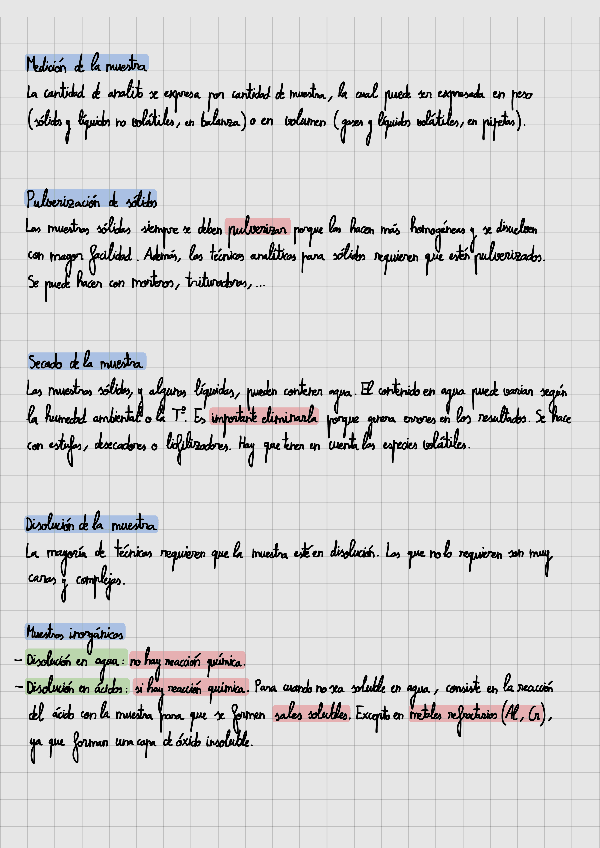 Medición de la muestra
La cantidad de analito se expresa por cantidad de muestra, la cual puede ser expresada en peso
(sólidos y líquidos no volátiles, en balanza) o en volumen (gases y líquidos volátiles, en pipetas).
Pulverización de sólidos
Las muestras sólidas siempre se deben pulverizar porque las hacen más homogéneas y se disuelven
con mayor facilidad. Además, las técnicas analíticas para sólidos requieren que estén pulverizados.
Se puede hacer con morteros, trituradoras,...
Secado de la muestra
Las muestras sólidas, y algunas líquidas, pueden contener agua. El contenido en agua puede variar según
la humedad ambiental o la Tª. Es importante eliminarla porque genera errores en los resultados. Se hace
con estufas, desecadores o liofilizadores. Hay que tener en cuenta las especies volátiles.
Disolución de la muestra
La mayoría de técnicas requieren que la muestra esté en disolución. Las que no lo requieren son muy
caras y complejas.
Muestras inorgánicas
- Disolución en agua: no hay reacción química.
- Disolución en ácidos: si hay reacción química. Para cuando no sea soluble en agua, consiste en la reacción
del ácido con la muestra para que se formen sales solubles. Excepto en metales refractarios (Al, Cr),
ya que forman una capa de óxido insoluble.